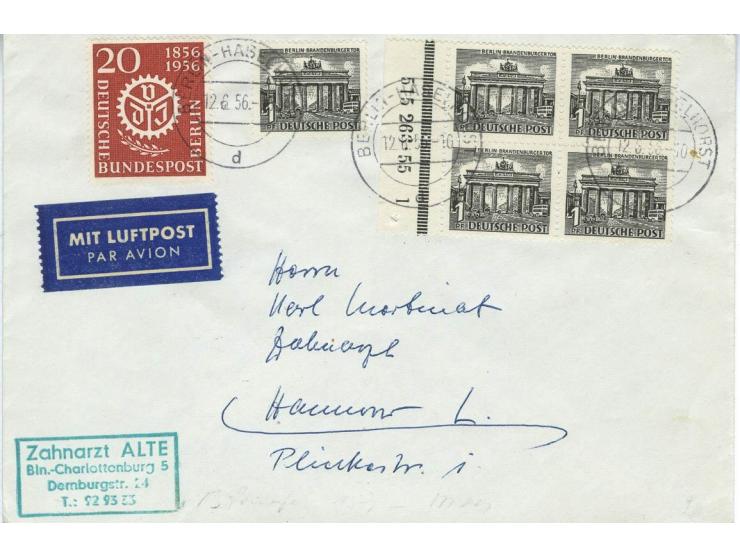 20
1856
1956
DEUTSCHE
BUNDESPOST
BERLIN
VDI
12.6.56.
d
BERLIN BRANDENBURGER TOR
1
PF
DEUTSCHE POST
515 263 55 1
BERLIN BRANDENBURGER TOR
1
PF
DEUTSCHE POST
BERLIN BRANDENBURGER TOR
1
PF
DEUTSCHE POST
BERLIN BRANDENBURGER TOR
1
PF
DEUTSCHE POST
BERLIN BRANDENBURGER TOR
1
PF
DEUTSCHE POST
MIT LUFTPOST
PAR AVION
Herrn
Karl Martinat
Zahnarzt
Hannover L.
Zahnarzt ALTE
Bln.-Charlottenburg 5
Dernburgstr. 24
T.: 92 93 33